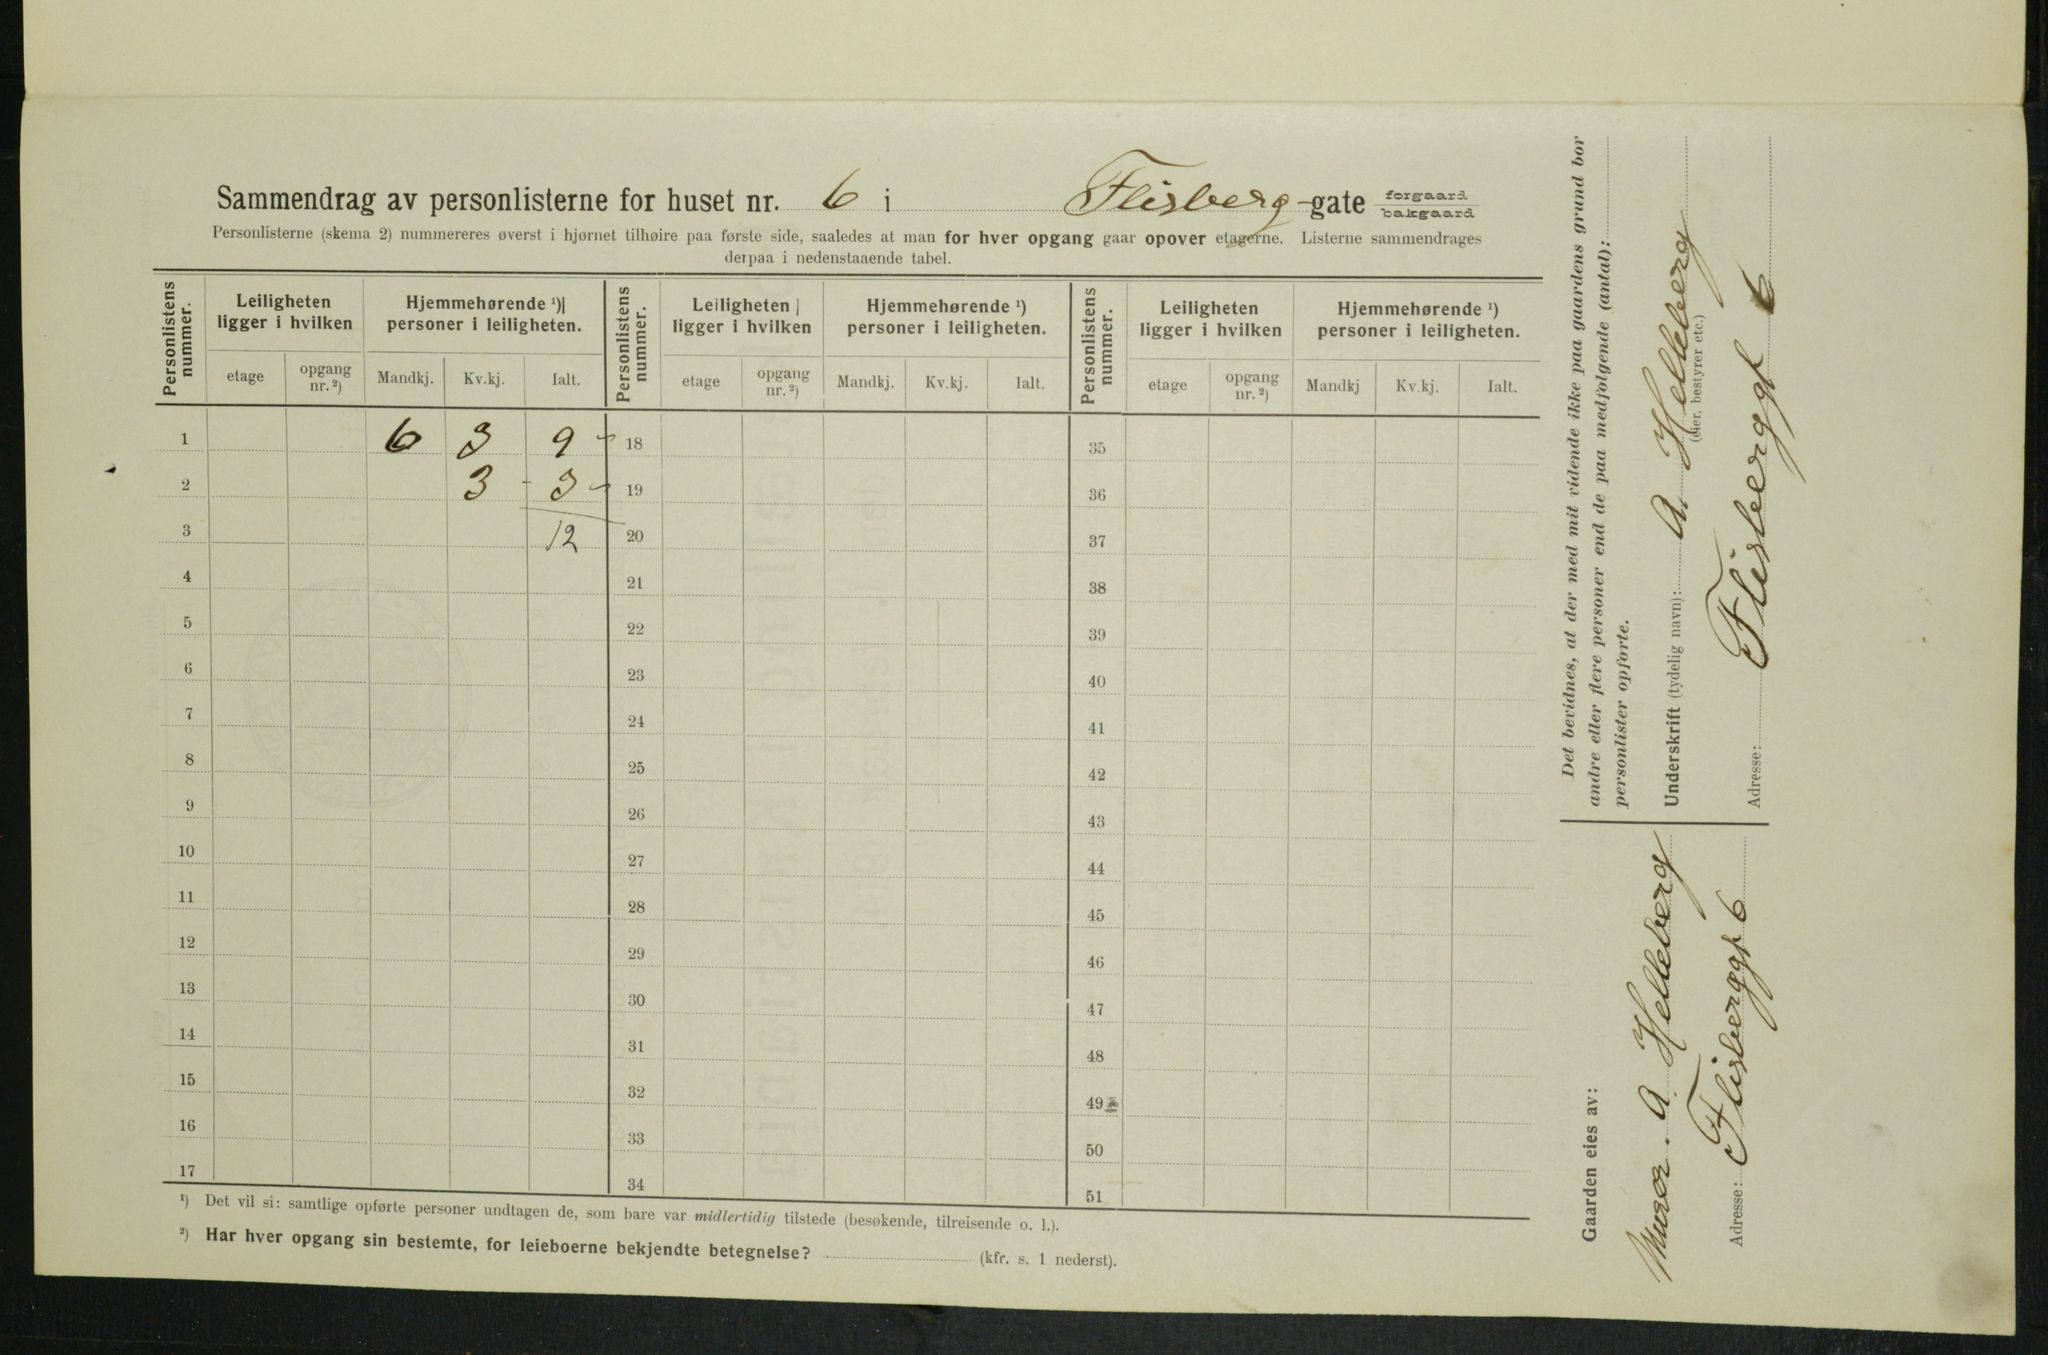 Sammendrag av personlisterne for huset nr. 6 i Flisberg-gate forgaard
bakgaard
Personlisterne (skema 2) nummereres øverst i hjørnet tilhøire paa første side, saaledes at man for hver opgang gaar opover etagerne. Listerne sammendrages
derpaa i nedenstaaende tabel.
Personlistens nummer. Leiligheten ligger i hvilken Hjemmehørende ¹) personer i leiligheten. Personlistens nummer. Leiligheten ligger i hvilken Hjemmehørende ¹) personer i leiligheten. Personlistens nummer. Leiligheten ligger i hvilken Hjemmehørende ¹) personer i leiligheten.
etage opgang nr. ²) Mandkj. Kv.kj. Ialt. etage opgang nr. ²) Mandkj. Kv.kj. Ialt. etage opgang nr. ²) Mandkj Kv.kj. Ialt.
1 6 3 9 18 35
2 3 - 3 19 36
3 12 20 37
4 21 38
5 22 39
6 23 40
7 24 41
8 25 42
9 26 43
10 27 44
11 28 45
12 29 46
13 30 47
14 31 48
15 32 49
16 33 50
17 34 51
¹) Det vil si: samtlige opførte personer undtagen de, som bare var midlertidig tilstede (besøkende, tilreisende o. l.).
²) Har hver opgang sin bestemte, for leieboerne bekjendte betegnelse? (kfr. s. 1 nederst).
Det bevidnes, at der med mit vidende ikke paa gaardens grund bor
andre eller flere personer end de paa medfølgende (antal):
personlister opførte.
Underskrift (tydelig navn): A. Helleberg
(eier, bestyrer etc.)
Adresse: Flisberggt 6
Gaarden eies av:
Murer. A. Helleberg
Adresse: Flisberggt 6